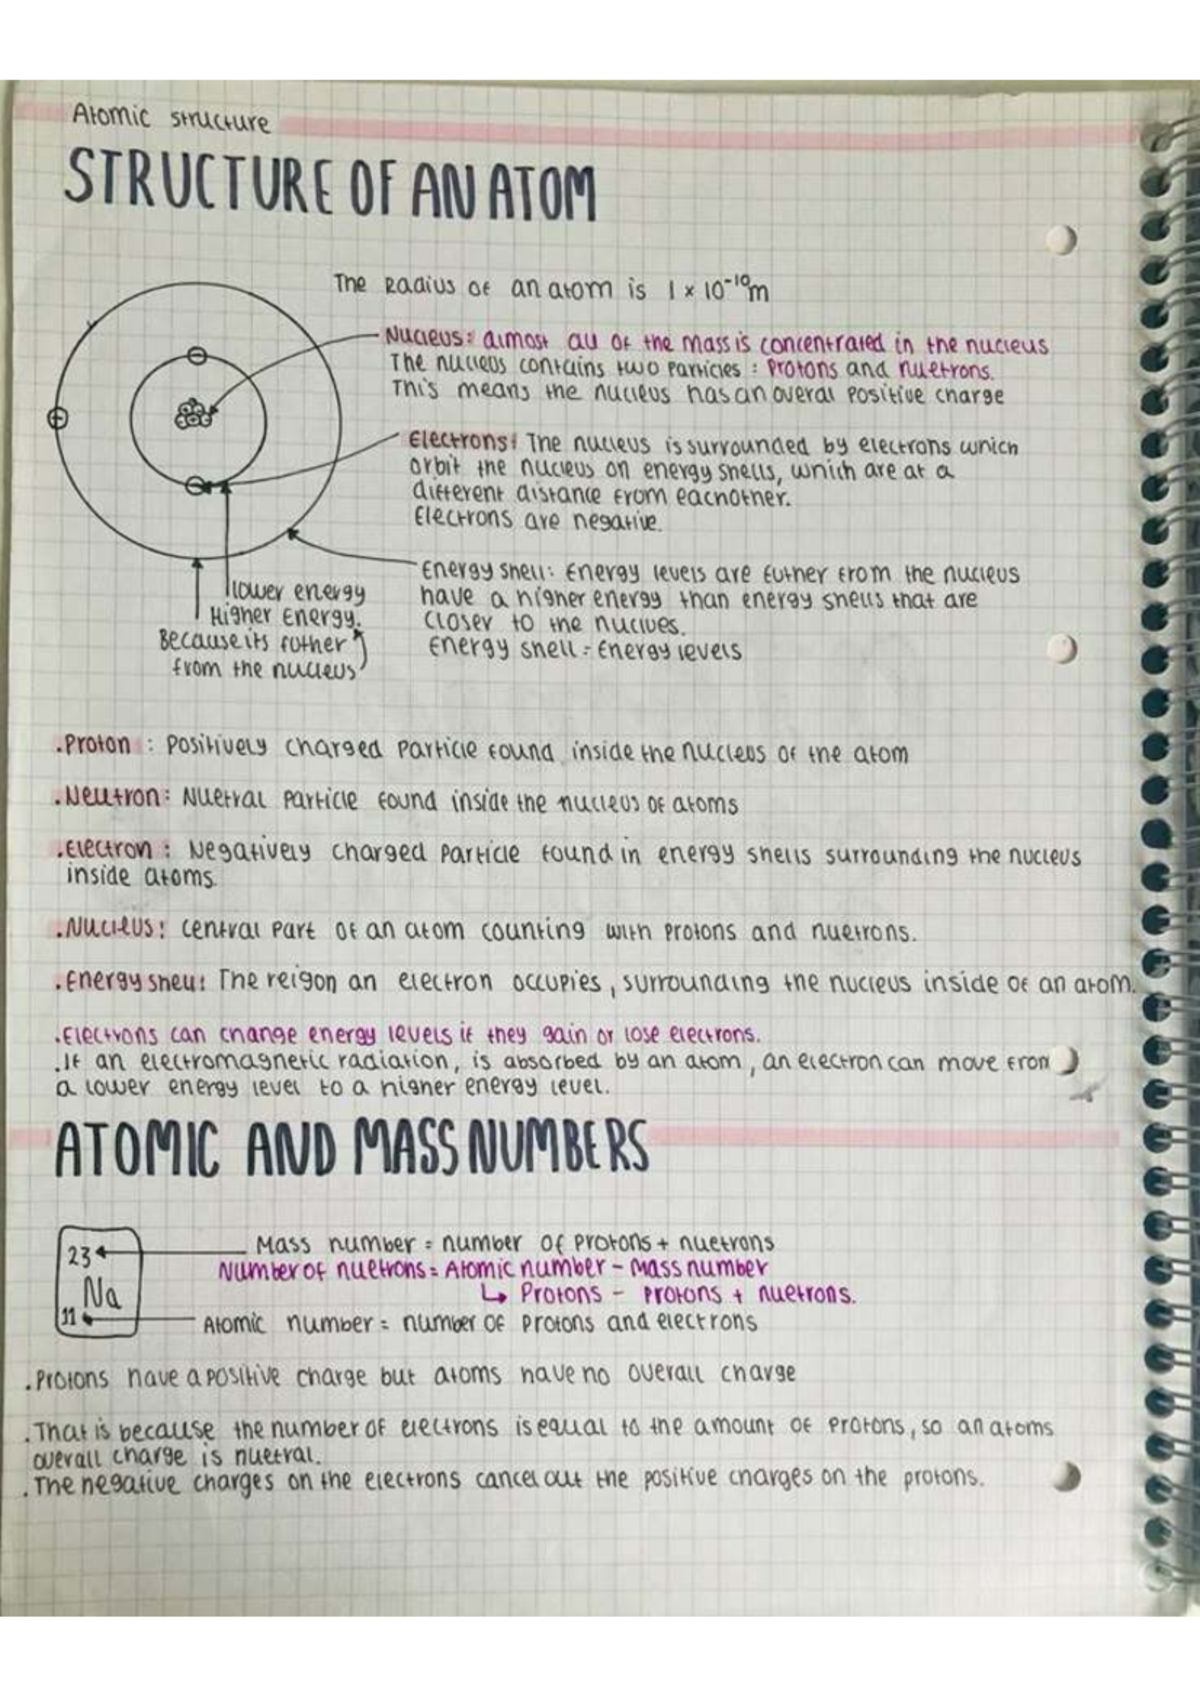 Atomic structure
STRUCTURE OF AN ATOM
The Radius of an atom is 1 × 10⁻¹⁰m
Nucleus: almost all of the mass is concentrated in the nucleus
The nucleus contains two particles : Protons and nuetrons.
This means the nucleus has an overal positive charge
Electrons: The nucleus is surrounded by electrons which
orbit the nucleus on energy shells, which are at a
different distance from eachother.
Electrons are negative.
Energy shell: Energy levels are futher from the nucleus
have a higher energy than energy shells that are
closer to the nuclues.
Energy shell = Energy levels
lower energy
Higher Energy.
Because its futher
from the nucleus
.Proton : Positively charged particle found inside the nucleus of the atom
.Neutron: Nuetral particle found inside the nucleus of atoms
.Electron : Negatively charged particle found in energy shells surrounding the nucleus
inside atoms.
.Nucleus: central part of an atom counting with protons and nuetrons.
.Energy shell: The reigon an electron occupies, surrounding the nucleus inside of an atom.
.Electrons can change energy levels if they gain or lose electrons.
.If an electromagnetic radiation, is absorbed by an atom, an electron can move from
a lower energy level to a higher energy level.
ATOMIC AND MASS NUMBERS
23
Na
11
Mass number = number of protons + nuetrons
Number of nuetrons = Atomic number - Mass number
↳ Protons - protons + nuetrons.
Atomic number = number of protons and electrons
.Protons have a positive charge but atoms have no overall charge
.That is because the number of electrons is equal to the amount of protons, so an atoms
overall charge is nuetral.
.The negative charges on the electrons cancel out the positive charges on the protons.